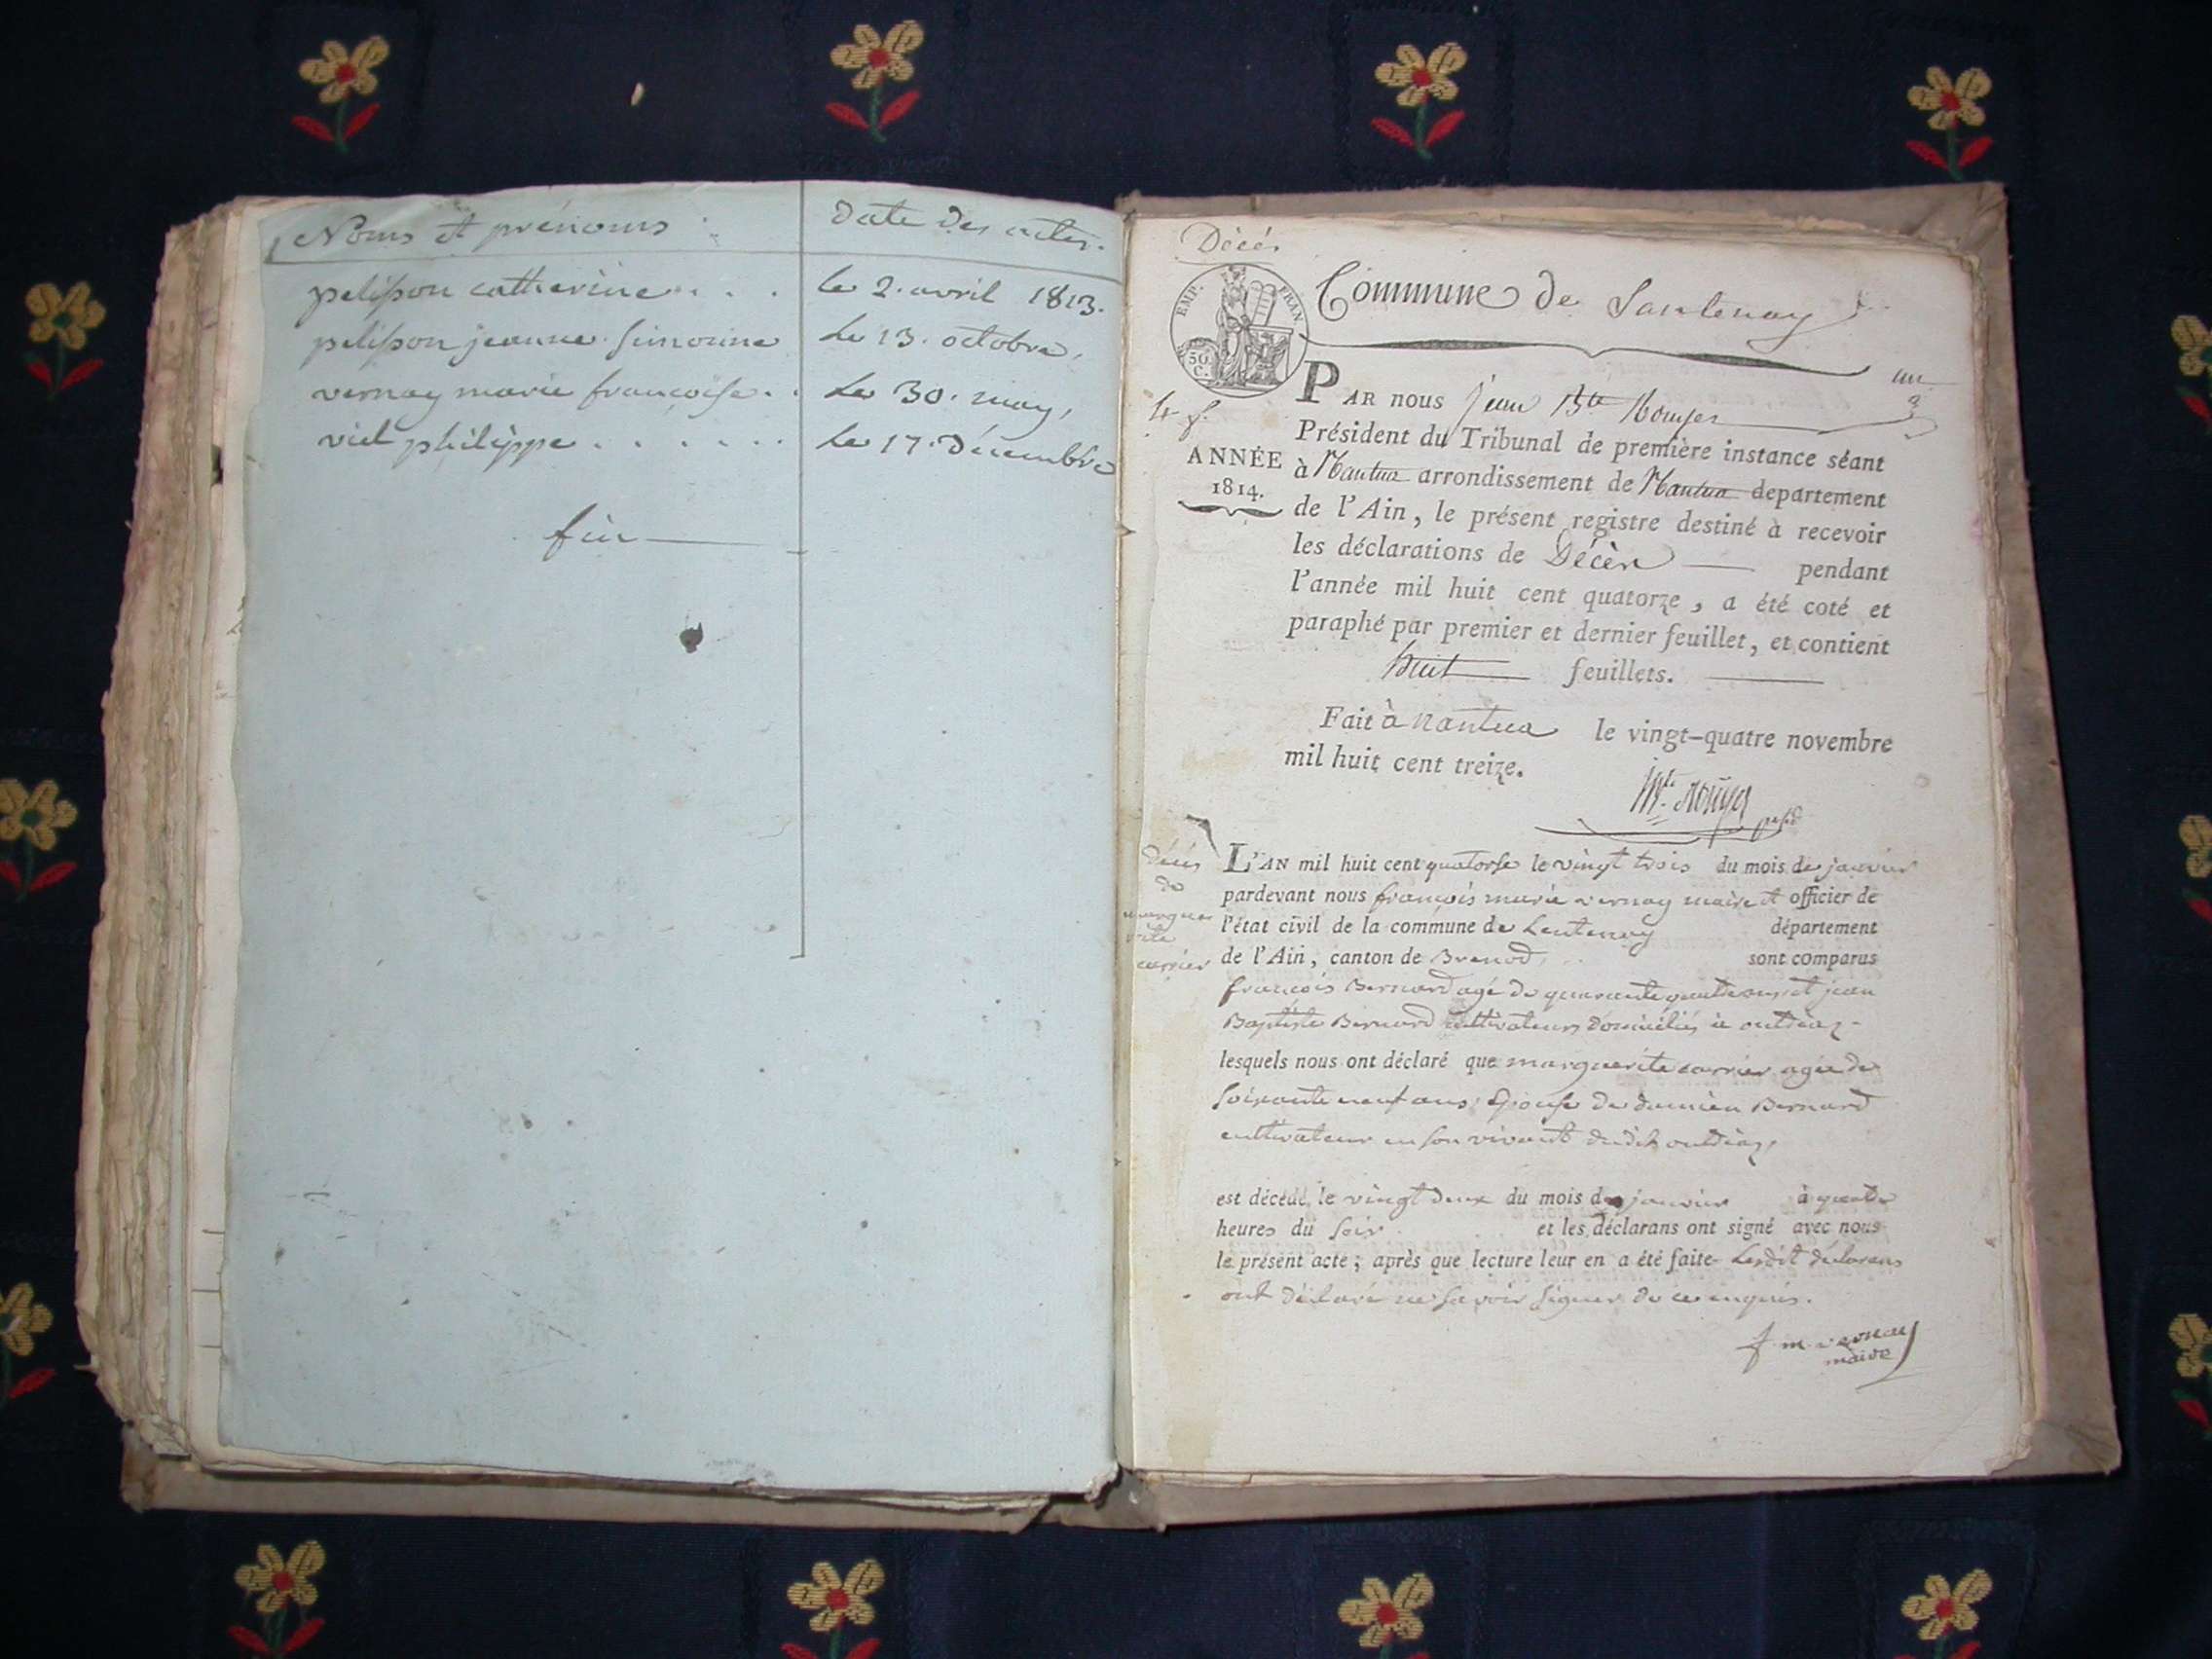 Noms et prénoms
date des actes.
pelisson catherine . . .
le 2. avril 1813.
pelisson jeanne simonine
le 13. octobre,
vernay marie françoise . .
le 30. may,
viel philippe . . . . . .
le 17. décembre
fin
Décès
EMP. FRAN
50 C.
Commune de Lantenay
un
PAR nous Jean Bte Rouyer
Président du Tribunal de première instance séant
ANNÉE
1814.
à Nantua arrondissement de Nantua departement
de l'Ain, le présent registre destiné à recevoir
les déclarations de Décès pendant
l'année mil huit cent quatorze, a été coté et
paraphé par premier et dernier feuillet, et contient
huit feuillets.
Fait à nantua le vingt-quatre novembre
mil huit cent treize.
Bte Rouyer
décès
de
margue
rite
carrier
L'AN mil huit cent quatorse le vingt trois du mois de janvier
pardevant nous françois marie vernay maire et officier de
l'état civil de la commune de Lantenay département
de l'Ain, canton de Brenod, sont comparus
françois Bernard agé de quarante quatre ans et jean
Baptiste Bernard cultivateurs domiciliés à outriaz
lesquels nous ont déclaré que marguerite carrier agée de
soixante neuf ans, Epouse de damien Bernard
cultivateur en son vivant dudit outriaz,
est décédé, le vingt deux du mois de janvier à quatre
heures du soir et les déclarans ont signé avec nous
le présent acte; après que lecture leur en a été faite Lesdit déclarans
ont déclaré ne savoir signer de ce enquis.
f. m. vernay
maire